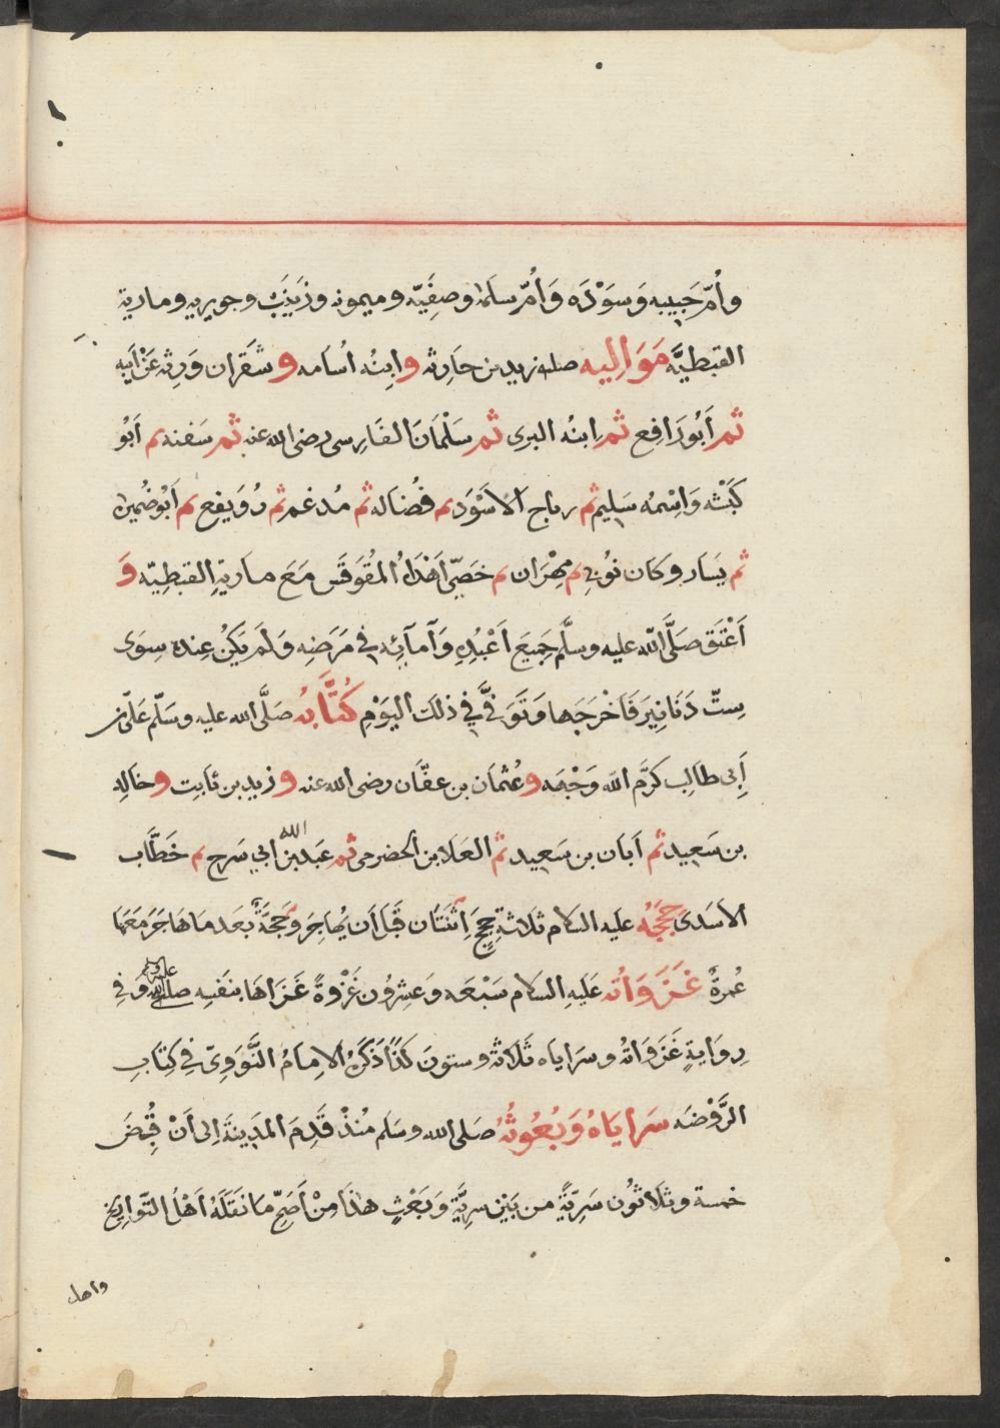 وأُمّ حَبِيبه وَسَوْدَه وَأُمّ سلمه وصفِيَّه وميمونه وزَيْنَبْ وجويريه ومارية
القبطيَّه مَوَالِيه صلم زيد بن حَارِثه وابنُه اُسَامه وشقران وَرِثه عَنْ اَبِيه
ثم اَبُورَافع ثم ابنُه البرى ثم سَلْمَانَ الفَارِسى رضى الله عنه ثم سَفنه ثم اَبُو
كَبْشه وَاسْمُه سَلِيم ثم رباح الاَسْوَد ثم فُضاله ثم مُدغم ثم رُوَيفع ثم اَبُو ضُميره
ثم يسَار وكَان نُوْبِي ثم مِهْرَان ثم خصَّي اَهْدَاهُ المُقَوقَس مَعَ ماريةِ القبطِيّه وَ
اَعْتَق صَلَّى الله عليه وسلَّم جَمِيعَ اَعْبُدِه وَآمآئِه في مَرَضِه وَلَم يَكُنْ عِنده سِوَى
سِتّ دَنَانِيرَ فَاَخْرَجَها وَتَوَفَّي في ذلكَ اليَوْمِ كُتَّابُه صَلَّى الله عليه وسَلّم عَلىّ بن
أَبِى طَالِب كرَّم الله وَجْهَه وعُثمَان بن عفّان رضى الله عنه وزيد بن ثَابِت وخَالِد
بن سَعِيد ثم اَبَان بن سَعِيد ثم العَلا بن الحضرمى ثم عَبد الله بن ابي سَرح ثم خَطَّاب
الاَسَدى حَجَّتُه عليَه السلام ثلاثةِ حِجَجٍ اِثنَتَان قَبل اَن يُهاجِرَ وَحَجَّةً بعَد مَا هَاجَرَ مَعَهَا
عُمرةٌ غَزَوَاتُه عَلَيهِ السلام سَبْعَه وَعِشرُون غَزْوةً غَزَاهَا بنفسِه صلى الله عليه وسلم وفي
رِوَايةٍ غَزَوَاتهُ وسَرَاياه ثَلاثة وستونَ كذَا ذَكَرهُ الاِمَامُ النَّوَوِىّ في كِتَابِ
الرَّوْضَه سَرايَاهُ وَبُعُوثُهُ صَلى الله وسَلم مُنذْ قَدِمَ المدِينةَ اِلى اَنْ قُبِضَ
خمسة وثَلاثوُن سَرِيَّةً من بَيْن سرِيَّة وَبَعْثٍ هٰذَا مِنْ اَصَحِّ مَا نَقَلَهُ اَهْلُ التّوارِيخ
واهل